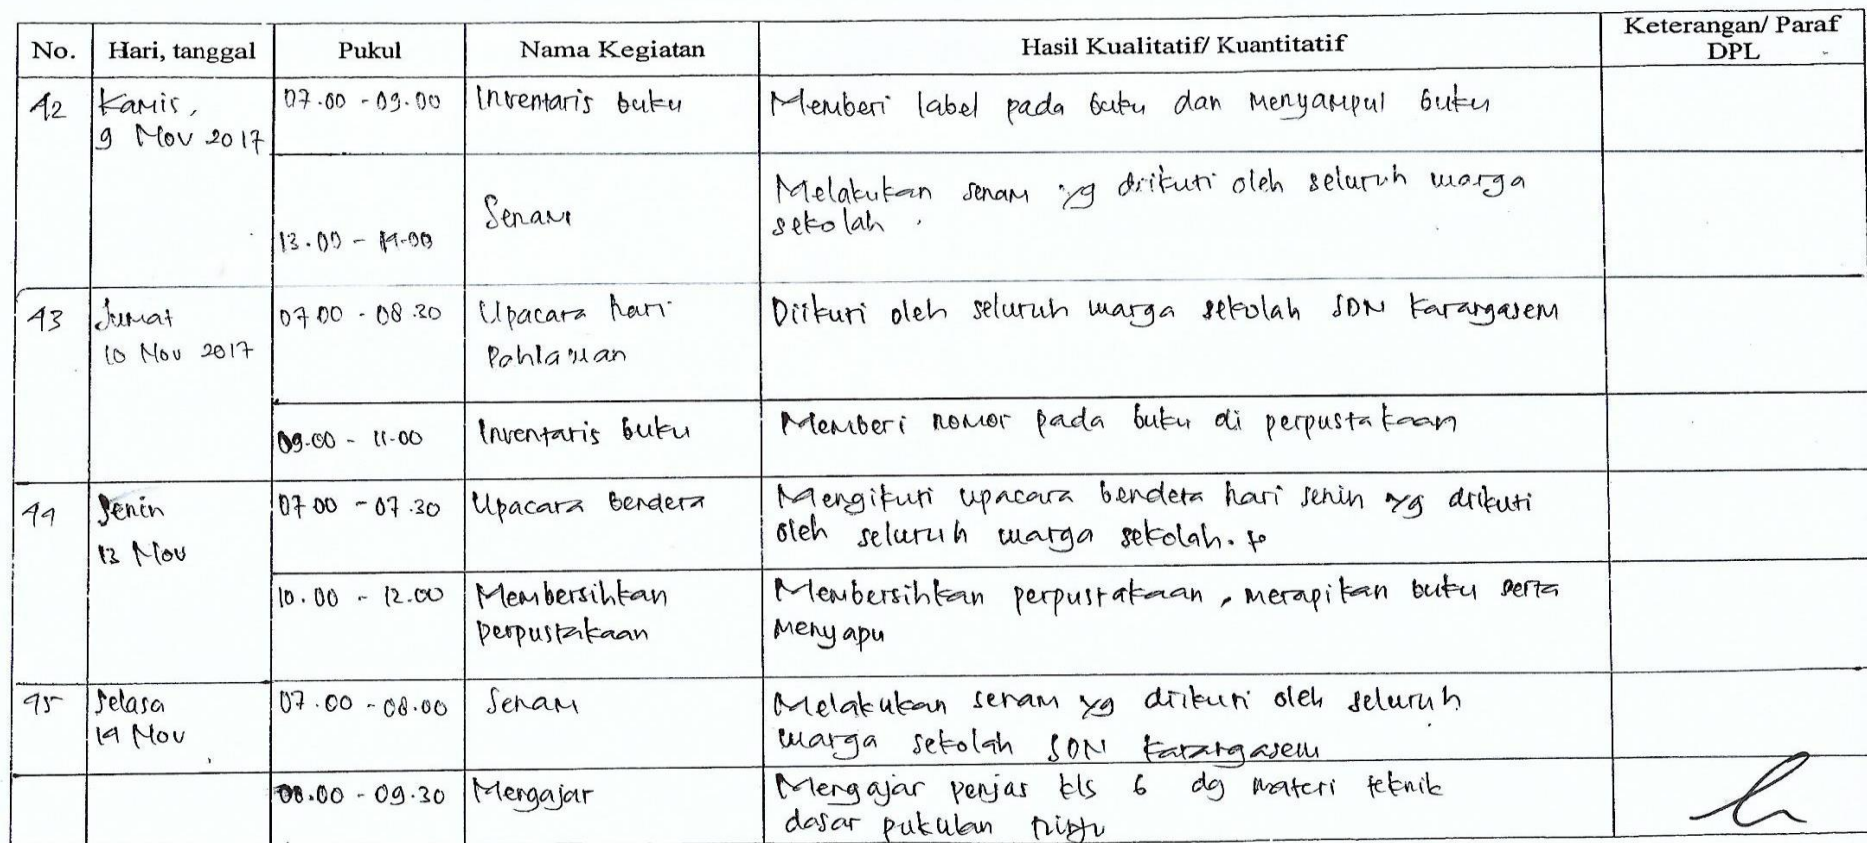 No. Hari, tanggal Pukul Nama Kegiatan Hasil Kualitatif/ Kuantitatif Keterangan/ Paraf
DPL
42 Kamis, 07.00 - 09.00 Inventaris buku Memberi label pada buku dan menyampul buku
9 Nov 2017
13.00 - 14.00 Senam Melakukan senam yg diikuti oleh seluruh warga
sekolah.
43 Jumat 07.00 - 08.30 Upacara hari Diikuti oleh seluruh warga sekolah SDN Karangasem
10 Nov 2017 Pahlawan
09.00 - 11.00 Inventaris buku Memberi nomor pada buku di perpustakaan
44 Senin 07.00 - 07.30 Upacara bendera Mengikuti upacara bendera hari senin yg diikuti
13 Nov oleh seluruh warga sekolah.
10.00 - 12.00 Membersihkan Membersihkan perpustakaan, merapikan buku serta
perpustakaan menyapu
45 Selasa 07.00 - 08.00 Senam Melakukan senam yg diikuti oleh seluruh
14 Nov warga sekolah SDN Karangasem
08.00 - 09.30 Mengajar Mengajar penjas kls 6 dg materi teknik
dasar pukulan